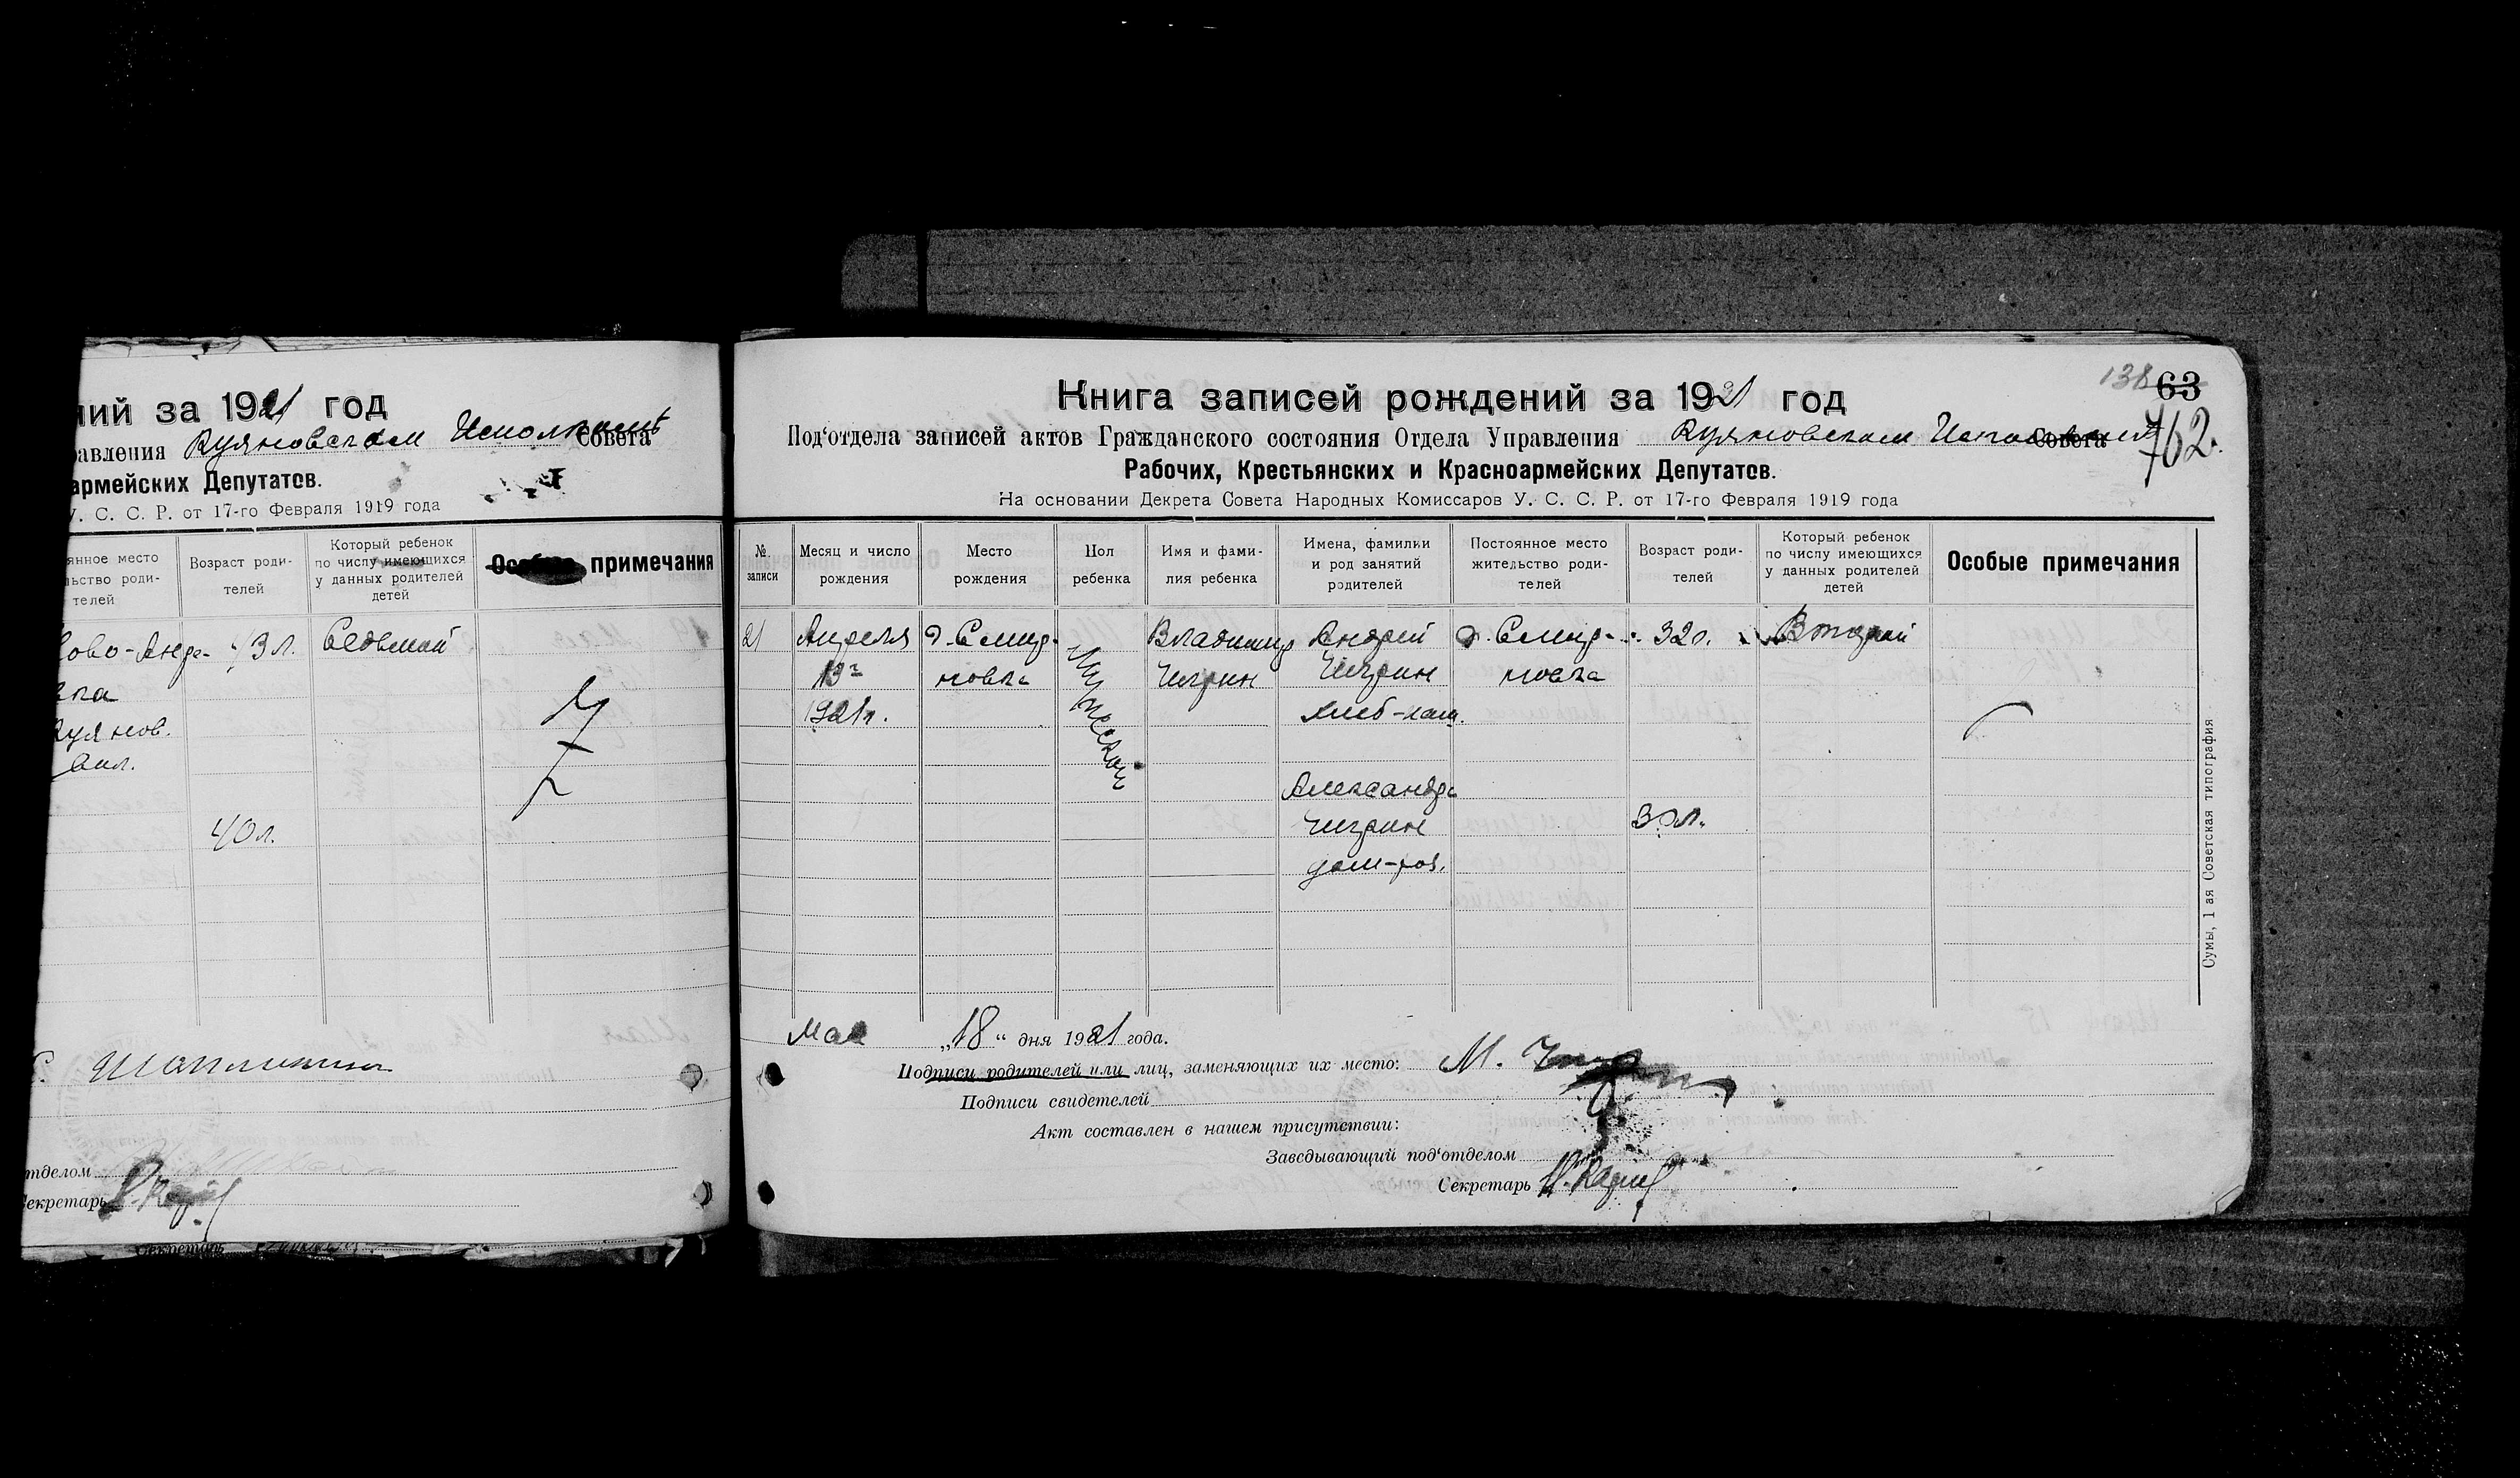 ний за 1921 год
равления Куяновском Исполкоме Совета
армейских Депутатов.
У. С. С. Р. от 17-го Февраля 1919 года
янное место
льство роди-
телей
Возраст роди-
телей
Который ребенок
по числу имеющихся
у данных родителей
детей
Особые примечания
ово-Андр- 43 л. Седьмой
вка
Куянов.
вол.
40 л.
отделом
Секретарь
Секретарь
Книга записей рождений за 1921 год
138 63
762.
Под'отдела записей актов Гражданского состояния Отдела Управления Куяновском Совета
Рабочих, Крестьянских и Красноармейских Депутатов.
На основании Декрета Совета Народных Комиссаров У. С. С. Р. от 17-го Февраля 1919 года
№
записи
Месяц и число
рождения
Место
рождения
Пол
ребенка
Имя и фами-
лия ребенка
Имена, фамилии
и род занятий
родителей
Постоянное место
жительство роди-
телей
Возраст роди-
телей
Который ребенок
по числу имеющихся
у данных родителей
детей
Особые примечания
21 Апреля д. Смир- Мужеской Владимир Андрей д. Смир- 32 л. Второй
13го новка Чигрин Чигрин новка
1921 г. хлеб-паш.
Александра
Чигрин 30 л.
дом-хоз.
Мая „18“ дня 1921 года.
Подписи родителей или лиц, заменяющих их место: М. Чигрин
Подписи свидетелей
Акт составлен в нашем присутствии:
Заведывающий под'отделом
Секретарь
Сумы, 1 ая Советская типография